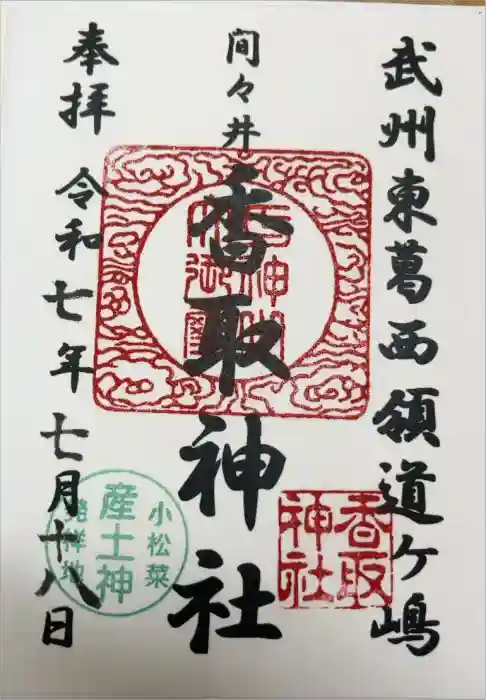 武州東葛西領道ヶ嶋
間々井
香取神社
香取
神社
奉拝
令和七年七月十八日
小松菜
産土神
発祥地